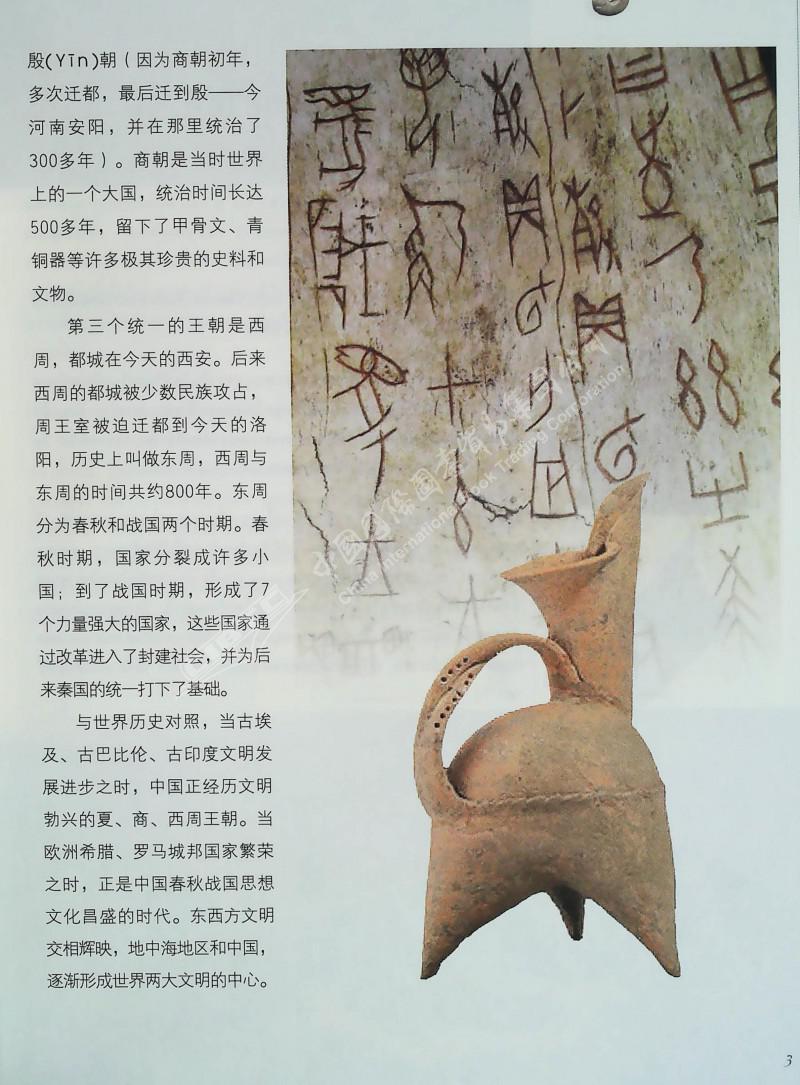 殷(Yīn)朝（因为商朝初年，
多次迁都，最后迁到殷——今
河南安阳，并在那里统治了
300多年）。商朝是当时世界
上的一个大国，统治时间长达
500多年，留下了甲骨文、青
铜器等许多极其珍贵的史料和
文物。
第三个统一的王朝是西
周，都城在今天的西安。后来
西周的都城被少数民族攻占，
周王室被迫迁都到今天的洛
阳，历史上叫做东周，西周与
东周的时间共约800年。东周
分为春秋和战国两个时期。春
秋时期，国家分裂成许多小
国；到了战国时期，形成了7
个力量强大的国家，这些国家通
过改革进入了封建社会，并为后
来秦国的统一打下了基础。
与世界历史对照，当古埃
及、古巴比伦、古印度文明发
展进步之时，中国正经历文明
勃兴的夏、商、西周王朝。当
欧洲希腊、罗马城邦国家繁荣
之时，正是中国春秋战国思想
文化昌盛的时代。东西方文明
交相辉映，地中海地区和中国，
逐渐形成世界两大文明的中心。
中国国际图书贸易集团公司
China International Book Trading Corporation
3